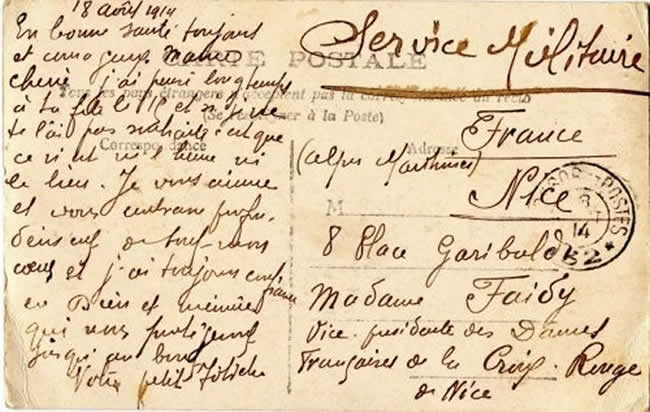 18 août 1914
En bonne santé toujours
et courageux Maman
chérie j'ai pensé longtemps
à ta fête le 15 et si je ne
te l'ai pas souhaitée c'est que
ce n'était ni l'heure ni
le lieu. Je vous aime
et vous embrasse profon-
dément de tout mon
cœur et j'ai toujours confiance
en Dieu et
qui nous protègent
jusqu'au bout
Votre petit
CARTE POSTALE
Tous les pays étrangers n'acceptent pas la correspondance au recto
(Se renseigner à la Poste)
Correspondance
Adresse
Service Militaire
France
(Alpes Maritimes)
Nice
M
8 Place Garibaldi
Madame Faidy
Vice-présidente des Dames
Françaises de la Croix-Rouge
de Nice
TRESOR POSTES
8
14
52